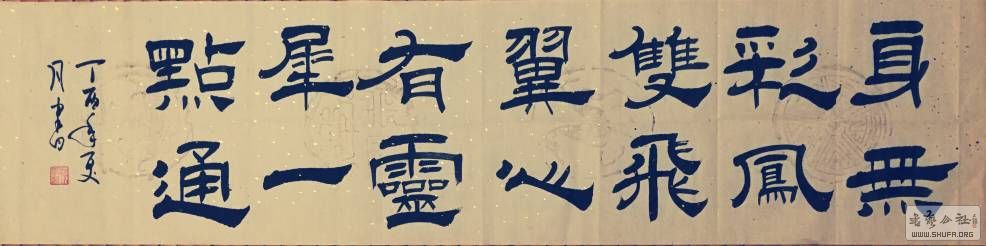 身無
彩鳳
雙飛
翼心
有靈
犀一
點通
丁酉年夏
月
书艺公社
WWW.SHUFA.ORG